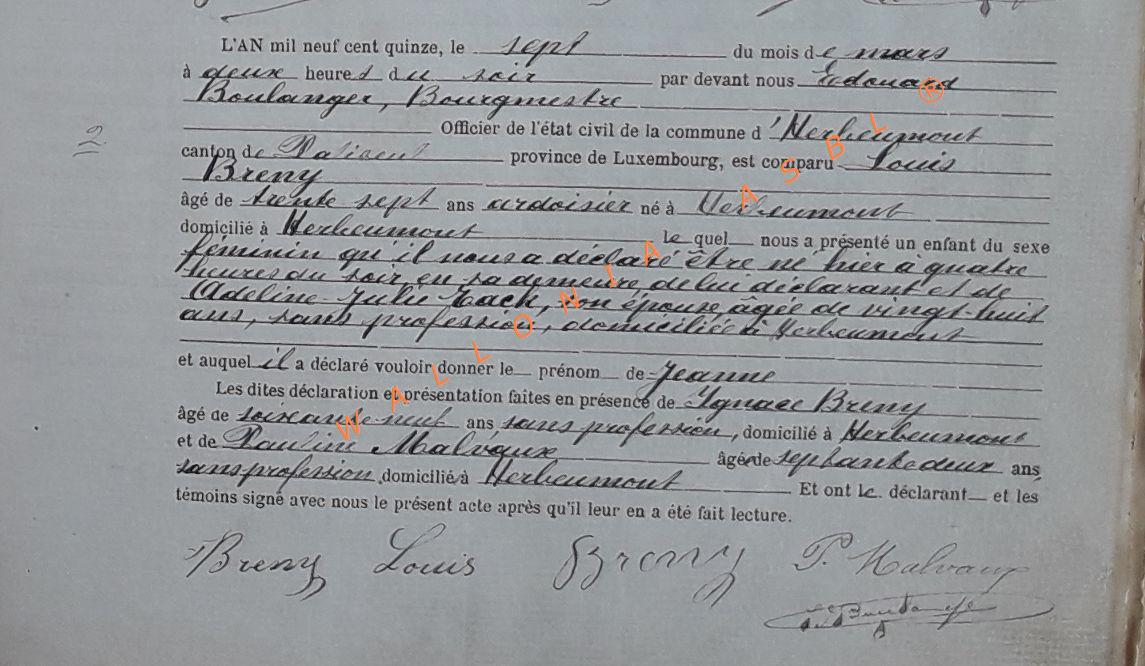 L'AN mil neuf cent quinze, le sept du mois de mars
à deux heures du soir par devant nous Edouard
Boulanger, Bourgmestre
Officier de l'état civil de la commune d'Herbeumont
2
canton de Paliseul province de Luxembourg, est comparu Louis
Breny
âgé de trente sept ans ardoisier né à Herbeumont
domicilié à Herbeumont lequel nous a présenté un enfant du sexe
féminin qu'il nous a déclaré être né hier à quatre
heures du soir, en sa demeure, de lui déclarant et de
Adeline Julie Lack, son épouse, âgée de vingt-huit
ans, sans profession, domiciliée à Herbeumont
et auquel il a déclaré vouloir donner le prénom de Jeanne
Les dites déclaration et présentation faites en présence de Ignace Breny
âgé de soixante-huit ans sans profession, domicilié à Herbeumont
et de Pauline Malvaux âgée de septante deux ans
sans profession, domiciliée à Herbeumont Et ont le déclarant et les
témoins signé avec nous le présent acte après qu'il leur en a été fait lecture.
Breny Louis Breny P. Malvaux
WALLONIA ASBL ®